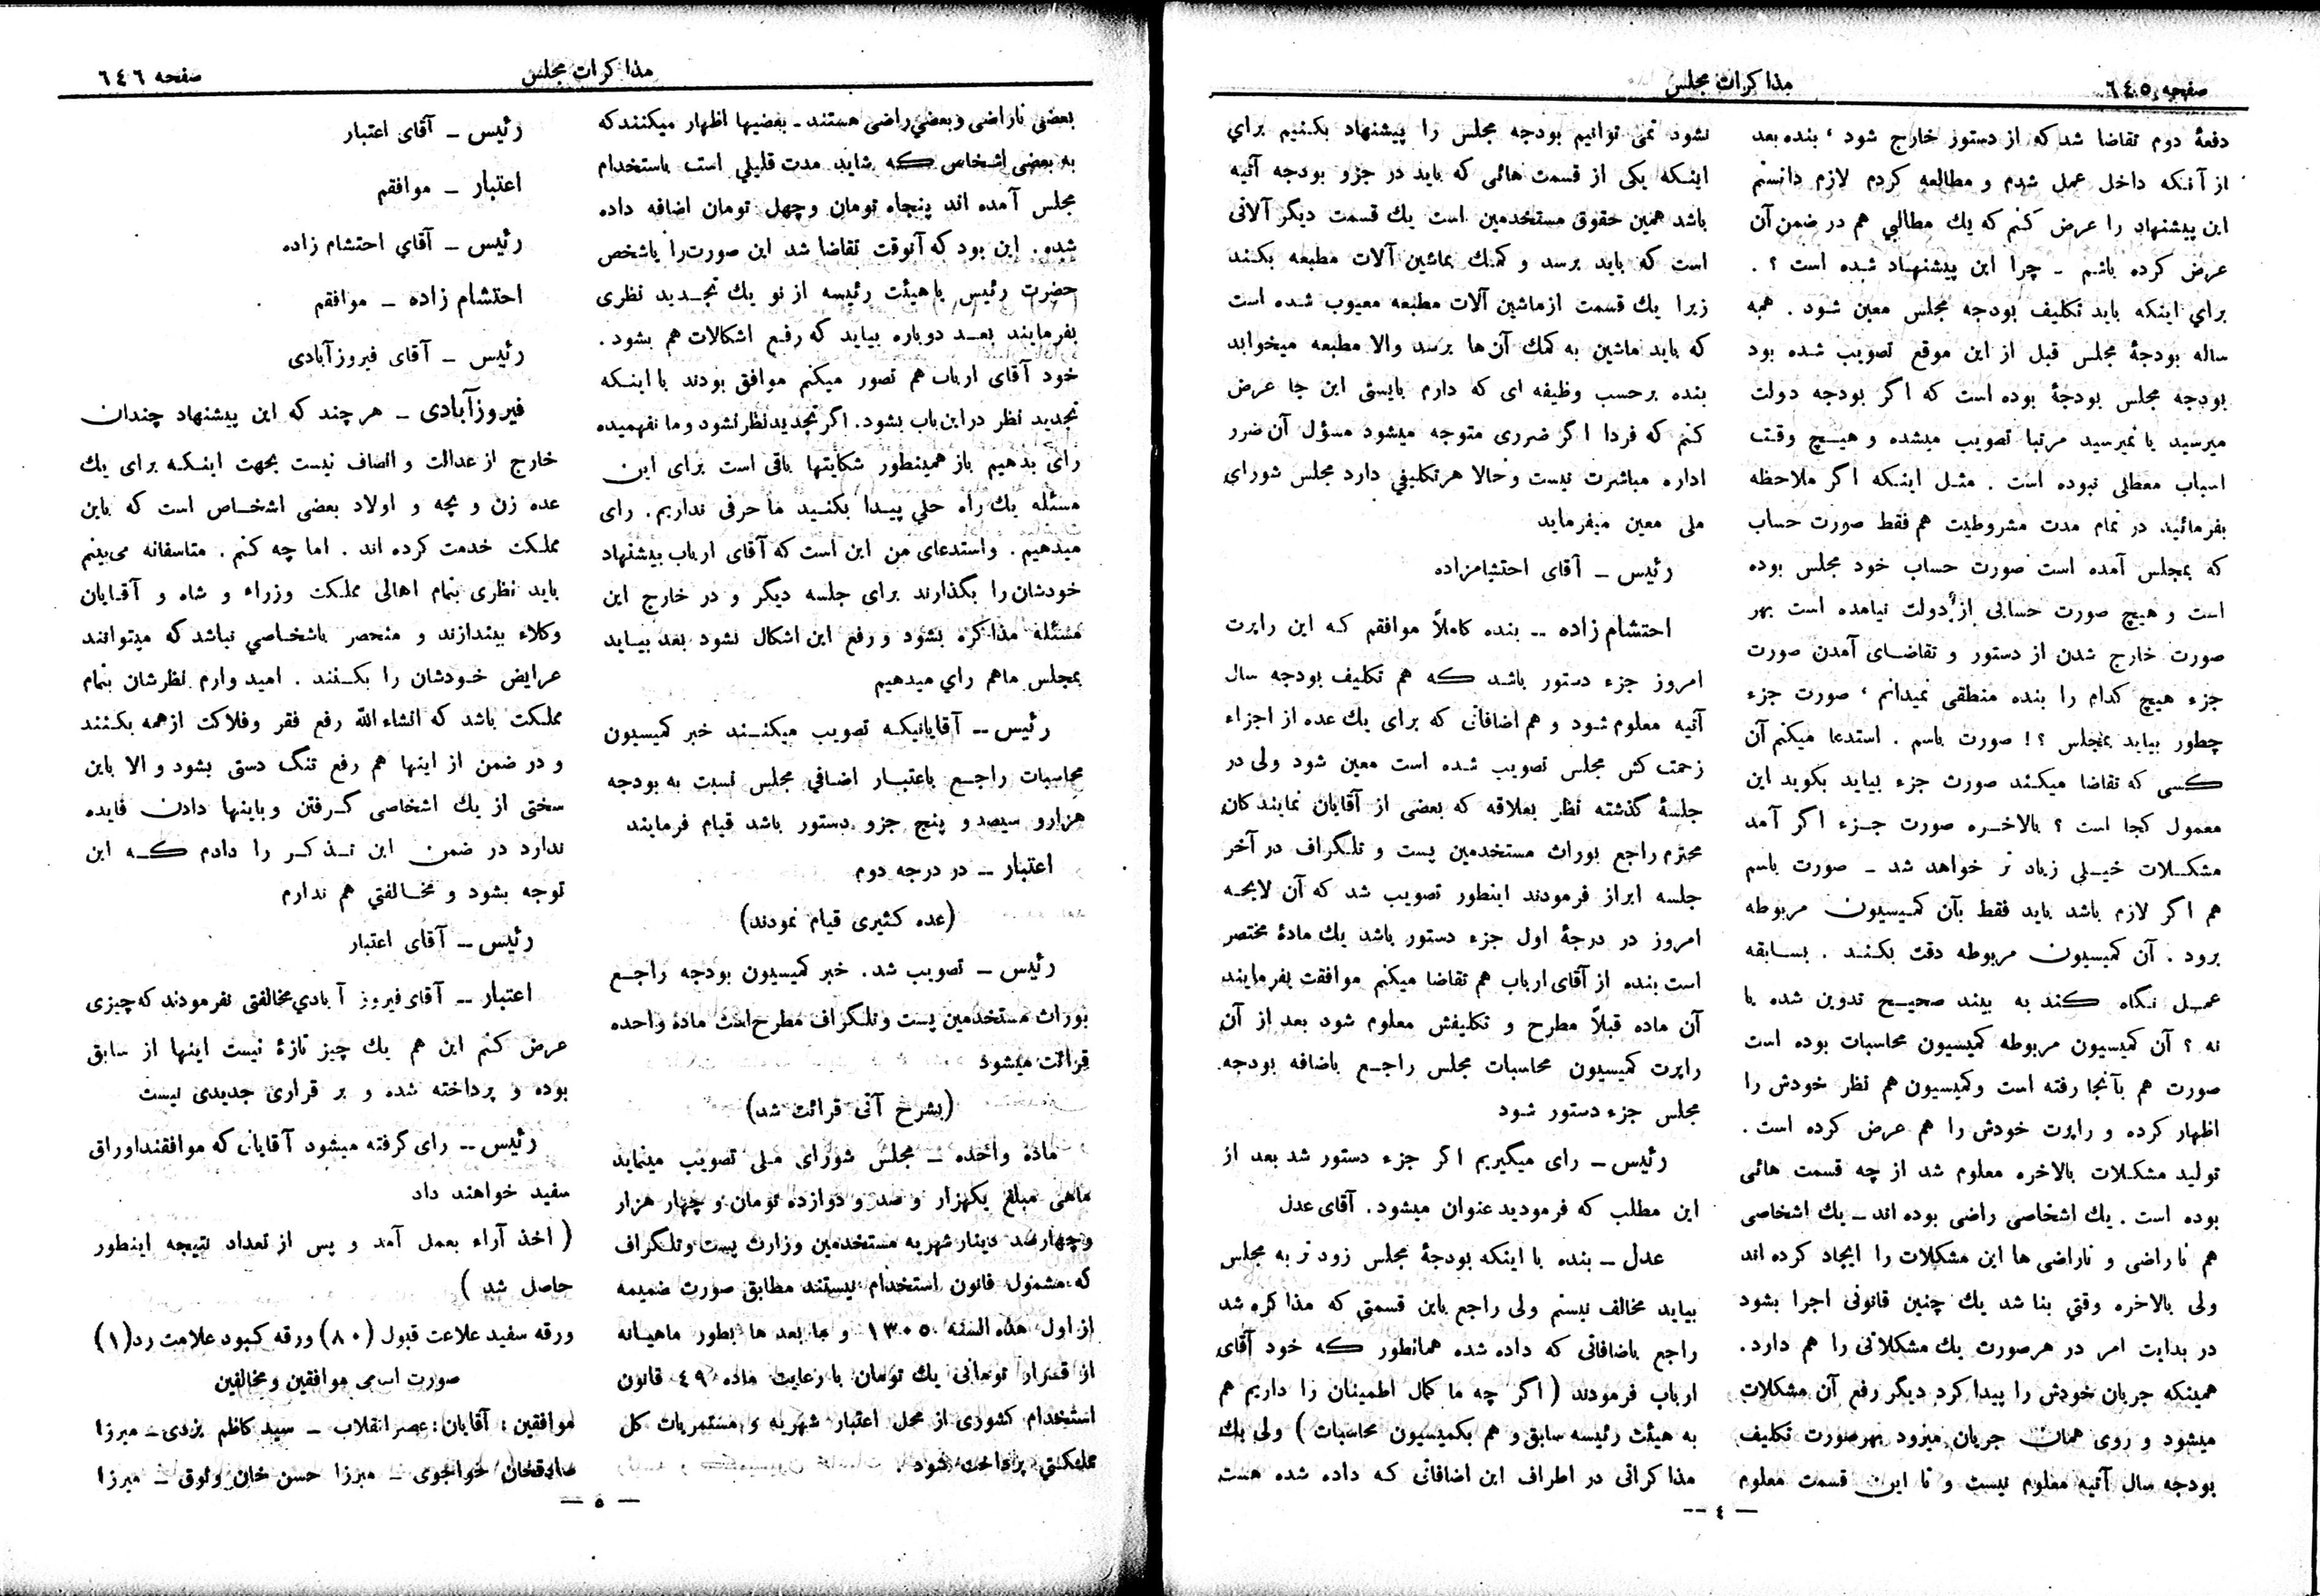 صفحه ٦٤٥
مذاکرات مجلس
دفعهٔ دوم تقاضا شد که از دستور خارج شود ، بنده بعد
از آنکه داخل عمل شدم و مطالعه کردم لازم دانستم
این پیشنهاد را عرض کنم که یك مطالبي هم در ضمن آن
عرض کرده باشم ـ چرا این پیشنهاد شده است ؟ .
براي اینکه باید تکلیف بودجه مجلس معین شود . همه
ساله بودجهٔ مجلس قبل از این موقع تصویب شده بود
بودجه مجلس بودجهٔ بوده است که اگر بودجه دولت
میرسید یا نمیرسید مرتبا تصویب میشده و هیـچ وقت
اسباب معطلی نبوده است . مثـل اینـکه اگر ملاحظه
بفرمائید در تمام مدت مشروطیت هم فقط صورت حساب
که بمجلس آمده است صورت حساب خود مجلس بوده
است و هیچ صورت حسابی از دولت نیامده است بهر
صورت خارج شدن از دستور و تقاضـای آمدن صورت
جزء هیچ کدام را بنده منطقی نمیدانم ، صورت جزء
چطور بیاید بمجلس ؟! صورت باسم . استدعا میکنم آن
کسی که تقاضا میکـند صورت جزء بیاید بکوید این
معمول کجا است ؟ بالاخـره صورت جـزء اگر آمد
مشکـلات خیـلی زیاد تر خواهد شد ـ صورت باسم
هم اگر لازم باشد باید فقط بآن کمیسیون مربوطه
برود . آن کمیسیون مربوطه دقت بکـنـد . بسـابقه
عمـل نـگاه کند به بیند صحیـح تدوین شده یا
نه ؟ آن کمیسیون مربوطه کمیسیون محاسبات بوده است
صورت هم بآنجا رفته است وکمیسیون هم نظر خودش را
اظهار کرده و راپرت خودش را هم عرض کرده است .
تولید مشکـلات بالاخره معلوم شد از چه قسمت هائی
بوده است . یك اشخاصی راضی بوده اند ـ یك اشخاصی
هم نا راضی و ناراضی ها این مشکلات را ایجاد کرده اند
ولی بالاخره وقتي بنا شد یك چنین قانونی اجرا بشود
در بدایت امر در هرصورت یك مشکلاتی را هم دارد.
همینکه جریان خودش را پیدا کرد دیگر رفع آن مشکلات
میشود و روی همان جریان میرود بهرصورت تکلیف
بودجه سال آتیه معلوم نیست و تا این قسمت معلوم
نشود نمی توانیم بودجه مجلس را پیشنهاد بکـنیم براي
اینـکه یکی از قسمت هائی که باید در جزو بودجه آتیه
باشد همین حقوق مستخدمین است یك قسمت دیگر آلاتی
است که باید برسد و کمـك بماشین آلات مطبعه بکـند
زیرا یك قسمت ازماشین آلات مطبعه معیوب شده است
که باید ماشین به کمك آن ها برسد والا مطبعه میخوابد
بنده برحسب وظیفه ای که دارم بایستی این جا عرض
کنم که فردا اگر ضرری متوجه میشود مسؤل آن ضرر
اداره مباشرت نیست و حالا هرتکلیفي دارد مجلس شورای
ملی معین میفرماید
رئیس ـ آقای احتشامزاده
احتشام زاده ـ بنده کاملاً موافقم کـه این راپرت
امروز جزء دستور باشد که هم تکلیف بودجه سال
آتیه معلوم شود و هم اضافاتی که برای یك عده از اجزاء
زحمت کش مجلس تصویب شده است معین شود ولی در
جلسهٔ گذشته نظر بعلاقه که بعضی از آقایان نمایندکان
محترم راجع بوراث مستخدمین پست و تلـگراف در آخر
جلسه ابراز فرمودند اینطور تصویب شد که آن لایحـه
امروز در درجهٔ اول جزء دستور باشد یك مادهٔ مختصر
است بنده از آقای ارباب هم تقاضا میکنم موافقت بفرمایند
آن ماده قبلاً مطرح و تکلیفش معلوم شود بعد از آن
راپرت کمیسیون محاسبات مجلس راجـع باضافه بودجه
مجلس جزء دستور شود
رئیس ـ رای میگیریم اگر جزء دستور شد بعد از
این مطلب که فرمودید عنوان میشود . آقای عدل
عدل ـ بنده با اینکه بودجهٔ مجلس زود تر به مجلس
بیاید مخالف نیستم ولی راجع باین قسمتی که مذاکره شد
راجع باضافاتی که داده شده همانطور که خود آقای
ارباب فرمودند ( اگر چه ما کمال اطمینان را داریم هم
به هیئت رئیسه سابق و هم بکمیسیون محاسبات ) ولی یك
مذاکراتی در اطراف این اضافاتی کـه داده شده هست
— ٤ —
مذاکرات مجلس
صفحه ٦٤٦
بعضی ناراضی وبعضي راضی هستند ـ بعضیها اظهار میکنند که
به بعضی اشخاص که شاید مدت قلیلي است باستخدام
مجلس آمده اند پنجاه تومان وچهل تومان اضافه داده
شده . این بود که آنوقت تقاضا شد این صورت را باشخص
حضرت رئیس یا هیئت رئیسه از نو یك تجـدید نظری
بفرمایند بعـد دوباره بیاید که رفـع اشکالات هم بشود .
خود آقای ارباب هم تصور میکنم موافق بودند با اینـکه
تجدید نظر در این باب بشود . اگر تجدید نظر نشود وما نفهمیده
رای بدهیم باز همینطور شکایتها باقی است برای این
مسئله یك راه حلي پیدا بکنـید ما حرفی نداریم . رای
میدهیم . واستدعای من این است که آقای ارباب پیشنهاد
خودشان را بگذارند برای جلسه دیگر و در خارج این
مسئله مذاکره بشود و رفع این اشکال نشود بعد بیـاید
بمجلس ماهم رای میدهیم
رئیس ـ آقایانیکـه تصویب میکنـند خبر کمیسیون
محاسبات راجـع باعتبـار اضـافي مجلس نسبت به بودجه
هزارو سیصد و پنج جزو دستور باشد قیام فرمایند
اعتبار ـ در درجه دوم
(عده کثیری قیام نمودند)
رئیس ـ تصویب شد . خبر کمیسیون بودجه راجـع
بوراث مستخدمین پست وتلگراف مطرح است مادهٔ واحده
قرائت میشود
(بشرح آتی قرائت شد)
مادهٔ واحده ـ مجلس شورای مـلی تصویب مینماید
ماهی مبلغ یکهزار و صد و دوازده تومان و چهار هزار
وچهارصد دینار شهریه مستخدمین وزارت پست وتلـگراف
که مشمول قانون استخدام نیستند مطابق صورت ضمیمه
از اول هذه السنه ١٣٠٥ و ما بعد ها بطور ماهیـانه
از قـرار تومانی یك تومان با رعایت ماده ٤٩ قانون
استخدام کشوری از محل اعتبار شهریه و مستمریات کل
مملکتي پرداخت شود .
رئیس ـ آقای اعتبار
اعتبار ـ موافقم
رئیس ـ آقاي احتشام زاده
احتشام زاده ـ موافقم
رئیس ـ آقای فیروزآبادی
فیروزآبادی ـ هرچند که این پیشنهاد چندان
خارج از عدالت و انصاف نیست بجهت اینـکـه برای یك
عده زن و بچه و اولاد بعضی اشخـاص است که باین
مملـکت خدمت کرده اند . اما چه کنم . متاسفانه می‌بینم
باید نظری بتمام اهالی مملـکت وزراء و شاه و آقـایان
وکلاء بیندازند و منحصر باشخـاصي نباشد که میتوانند
عرایض خـودشان را بکـنند . امید وارم نظرشان بتمام
مملـکت باشد که انشاءالله رفع فقر وفلاکت ازهمه بکـنند
و در ضمن از اینها هم رفع تنگ دستی بشود و الا باین
سختی از یك اشخاصی گـرفتن و باینها دادن فایده
ندارد در ضمن این تـذکـر را دادم کـه این
توجه بشود و مخـالفتي هم ندارم
رئیس ـ آقای اعتبار
اعتبار ـ آقای فیروز آبادي مخالفتی نفرمودند که چیزی
عرض کنم این هم یك چیز تازهٔ نیست اینها از سابق
بوده و پرداخته شده و بر قراری جدیدی نیست
رئیس ـ رای گرفته میشود آقایانی که موافقنداوراق
سفید خواهند داد
( اخذ آراء بعمل آمد و پس از تعداد نتیجه اینطور
حاصل شد )
ورقه سفید علاعت قبول (٨٠) ورقه کـبود علامت رد(١)
صورت اسامی موافقین و مخالفین
موافقین : آقایان : عصر انقلاب ـ سید کاظم یزدی ـ میرزا
صادقخان خواجوی ـ میرزا حسن خان وثوق ـ میرزا
— ٥ —